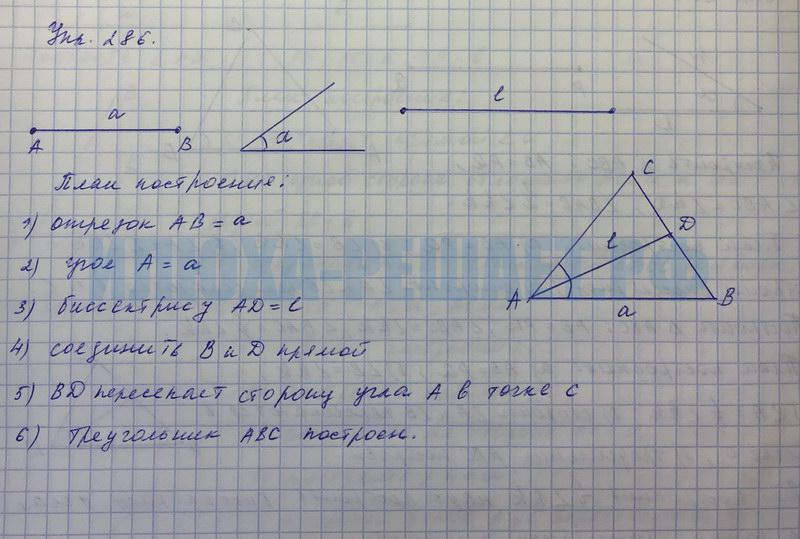 Упр. 286.
a
A B
α
l
План построение:
1) отрезок AB = a
2) угол A = α
3) биссектрису AD = l
4) соединить B и D прямой
5) BD пересекает сторону угла A в точке C
6) Треугольник ABC построен.
C
D
l
A B
a